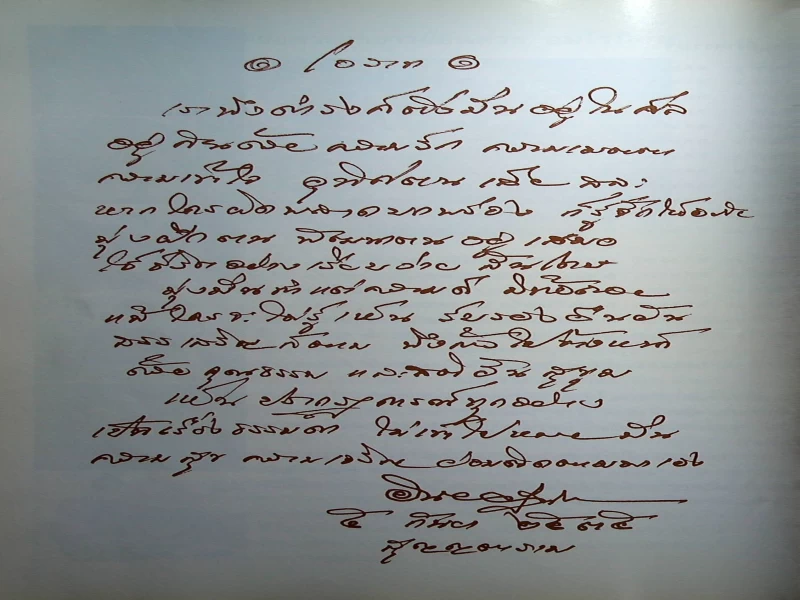 ๏ โอวาท ๏
เราพึงดำรงค์ชีวิตมั่นอยู่ในศีล
อยู่กันด้วย ความรัก ความเมตตา
ความเข้าใจ อุทิศตน เสียสละ
หากใครผิดพลาดบกพร่อง ก็รู้จักให้อภัย
มุ่งฝึกตน พัฒนาตนอยู่เสมอ
ใช้ชีวิตอย่างเรียบง่าย สันโดษ
มุ่งมั่นทำแต่ความดี มิท้อถอย
แม้ใครจะไม่รู้เห็น รับรองยืนยัน
สรรเสริญก็ตาม พึงก้าวไปข้างหน้า
ด้วยคุณธรรม และสติอันสุขุม
เห็นปรากฏการณ์ทุกอย่าง
เป็นเรื่องธรรมดา ไม่เข้าไปหมายมั่น
ความสุข ความเจริญ ย่อมติดตามมาเอง
๕ กันยา ๒๕๓๕
สุญญตาราม